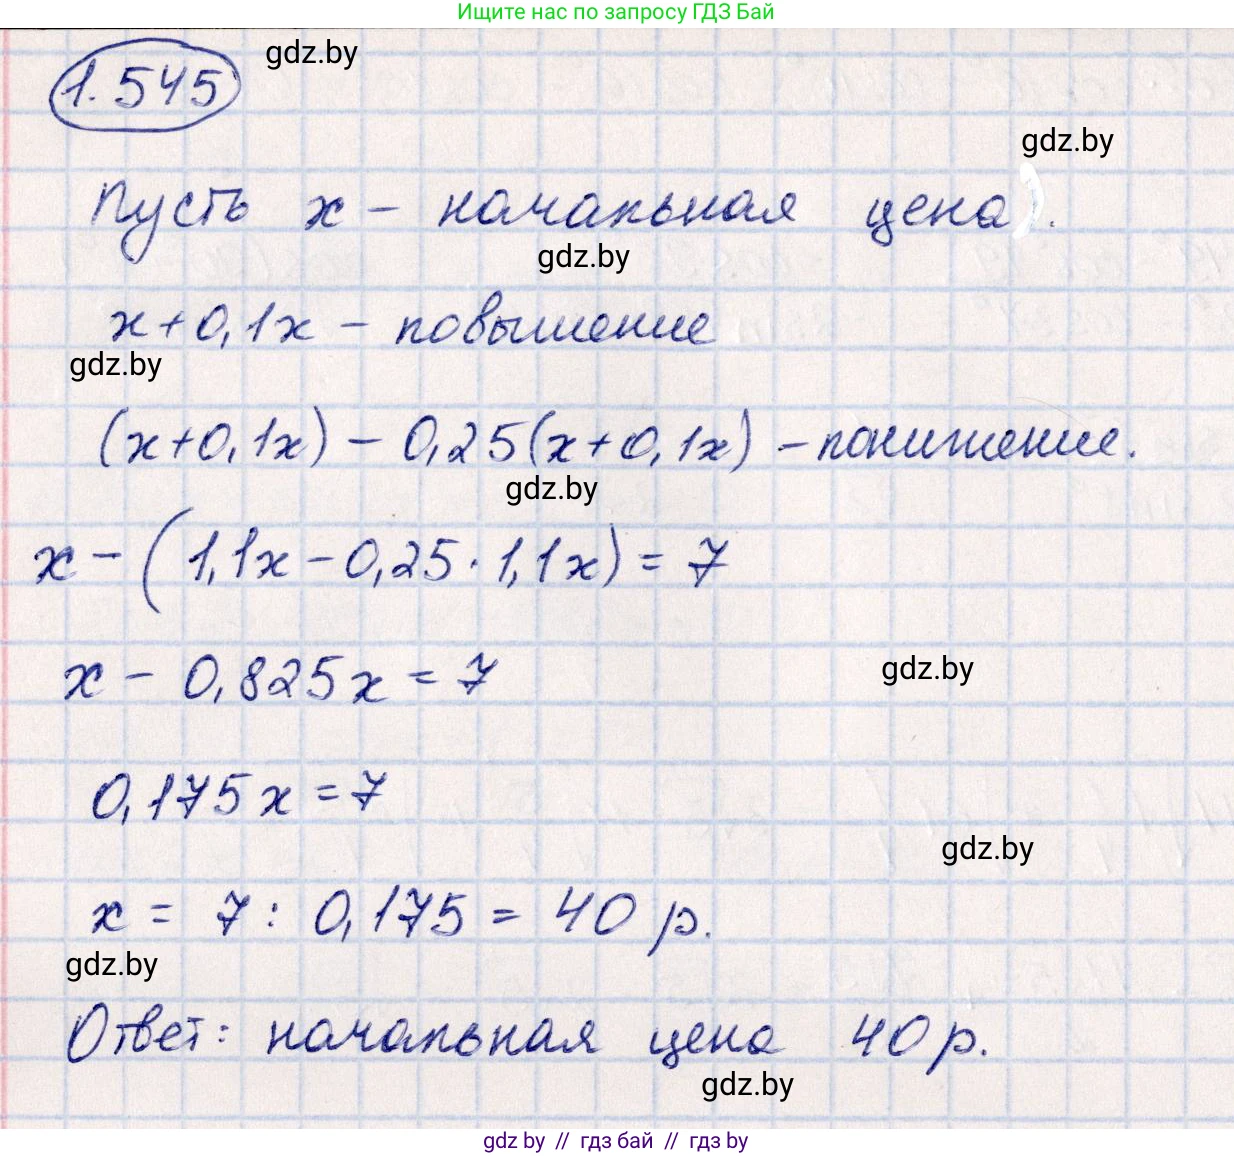 Ищите нас по запросу ГДЗ Бай
1.545
gdz.by
gdz.by
Пусть x – начальная цена.
gdz.by
x+0,1x – повышение
gdz.by
(x+0,1x) – 0,25(x+0,1x) – понижение.
gdz.by
x – (1,1x – 0,25·1,1x) = 7
x – 0,825x = 7
gdz.by
0,175x = 7
gdz.by
x = 7 : 0,175 = 40 р.
gdz.by
Ответ: начальная цена 40р.
gdz.by
gdz by // гдз бай // гдз by